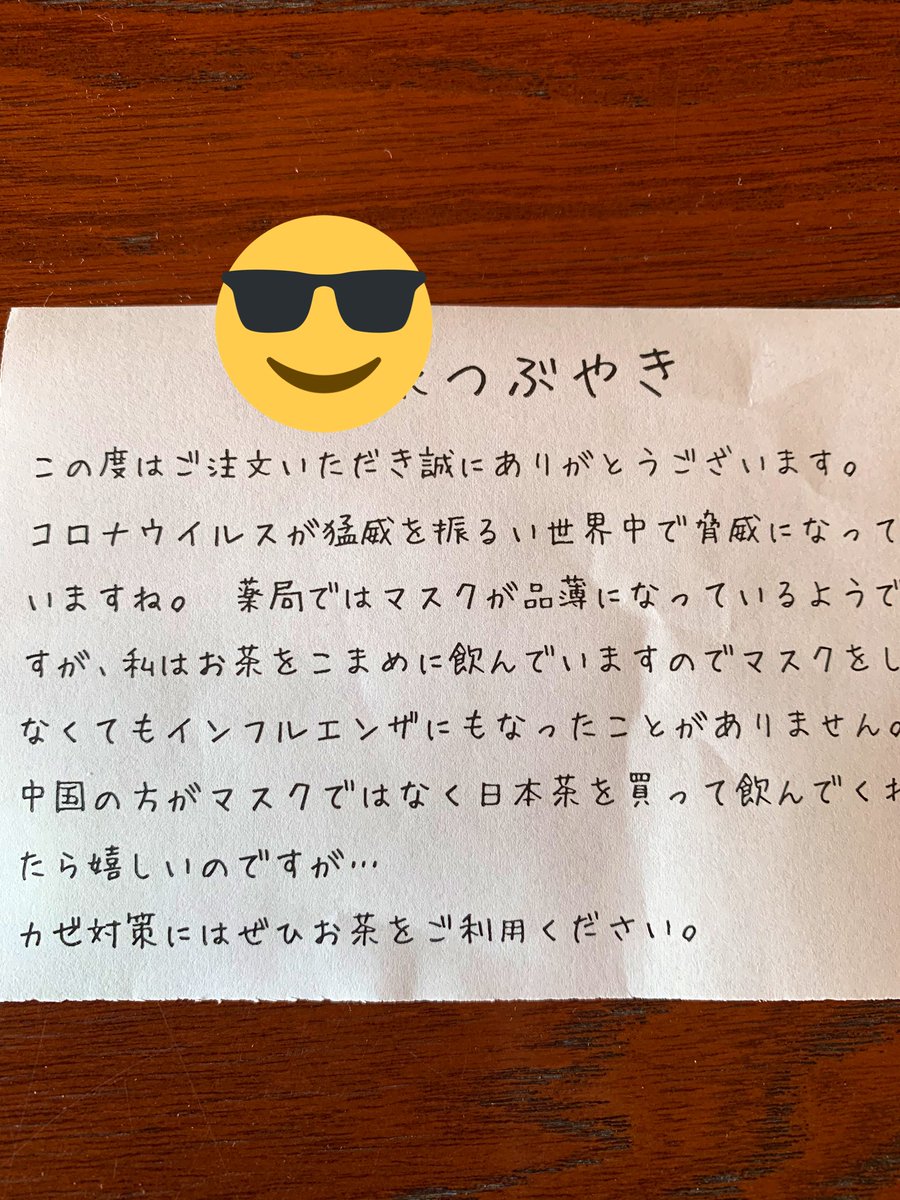 つぶやき
この度はご注文いただき誠にありがとうございます。
コロナウイルスが猛威を振るい世界中で脅威になって
いますね。 薬局ではマスクが品薄になっているようで
すが、私はお茶をこまめに飲んでいますのでマスクをし
なくてもインフルエンザにもなったことがありません。
中国の方がマスクではなく日本茶を買って飲んでくれ
たら嬉しいのですが…
カゼ対策にはぜひお茶をご利用ください。